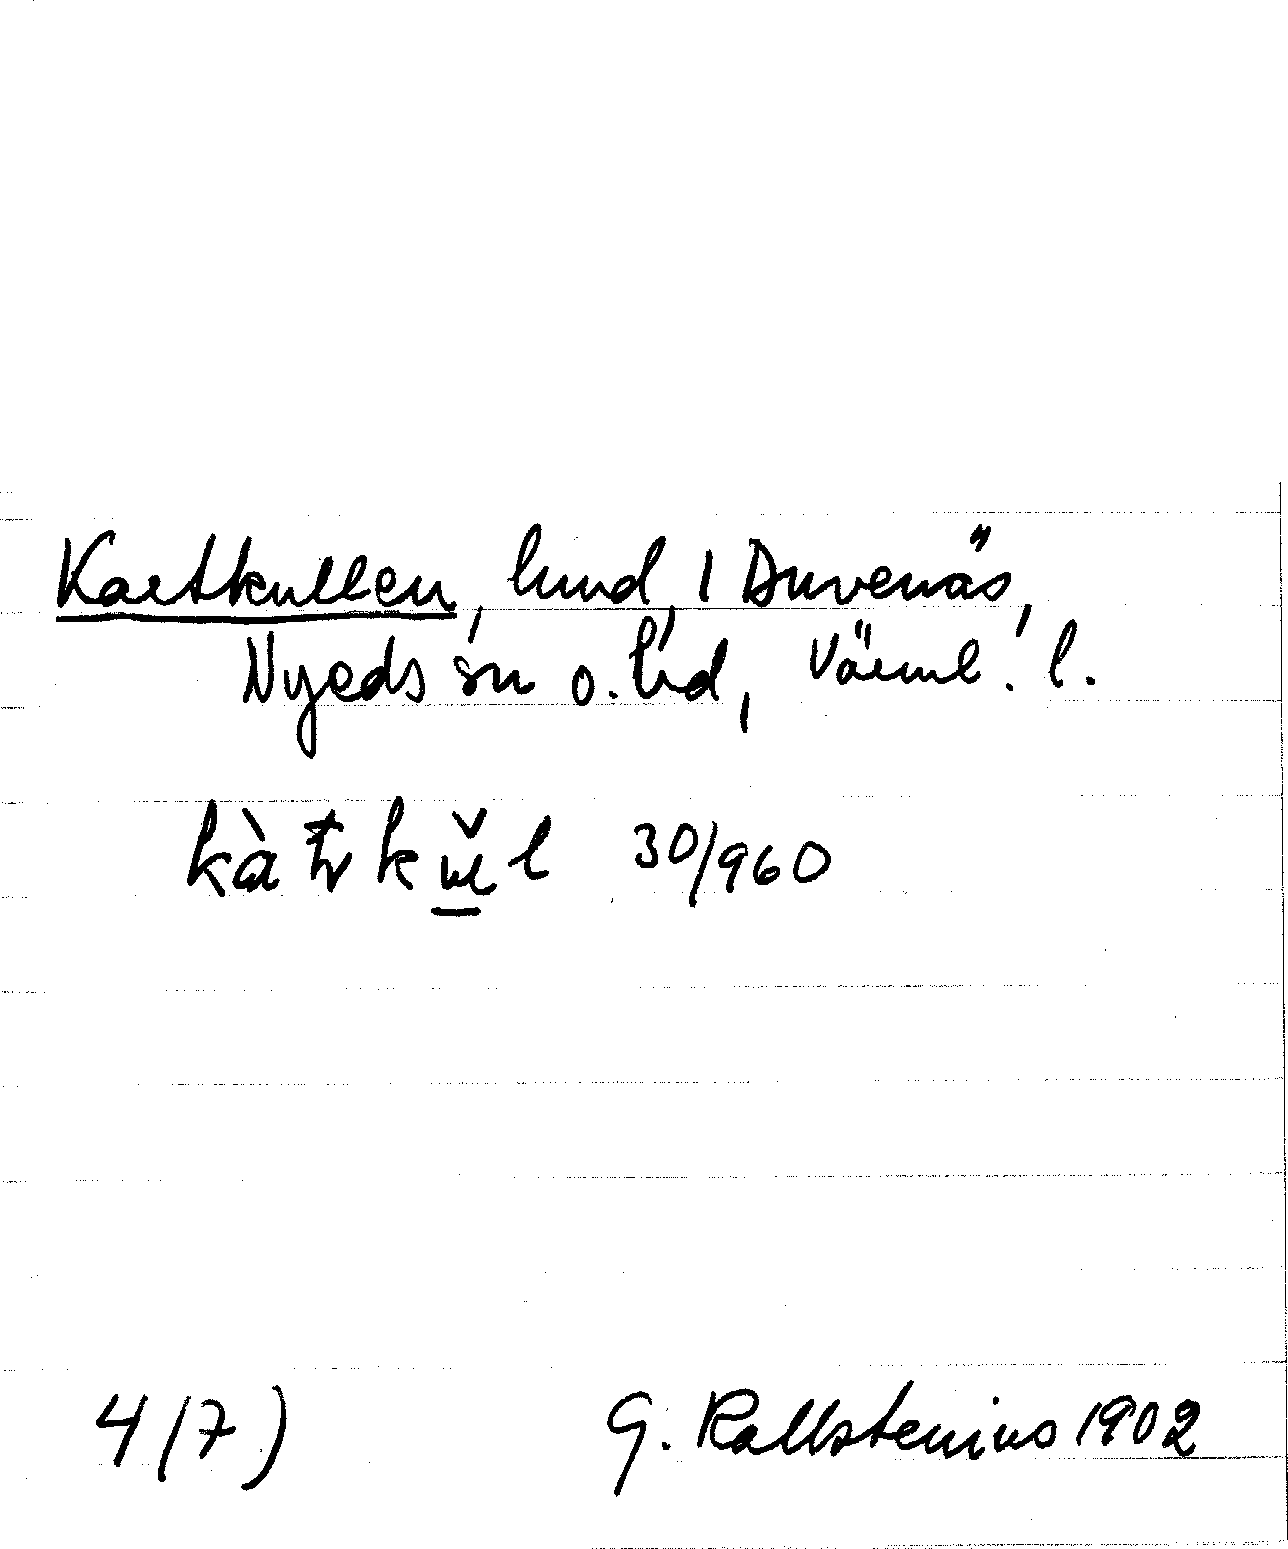 Kartkullen, lund, 1 Duvenäs,
Nyeds sn o. hd, Värml. l.
30/960
4(7) G. Kallstenius 1902